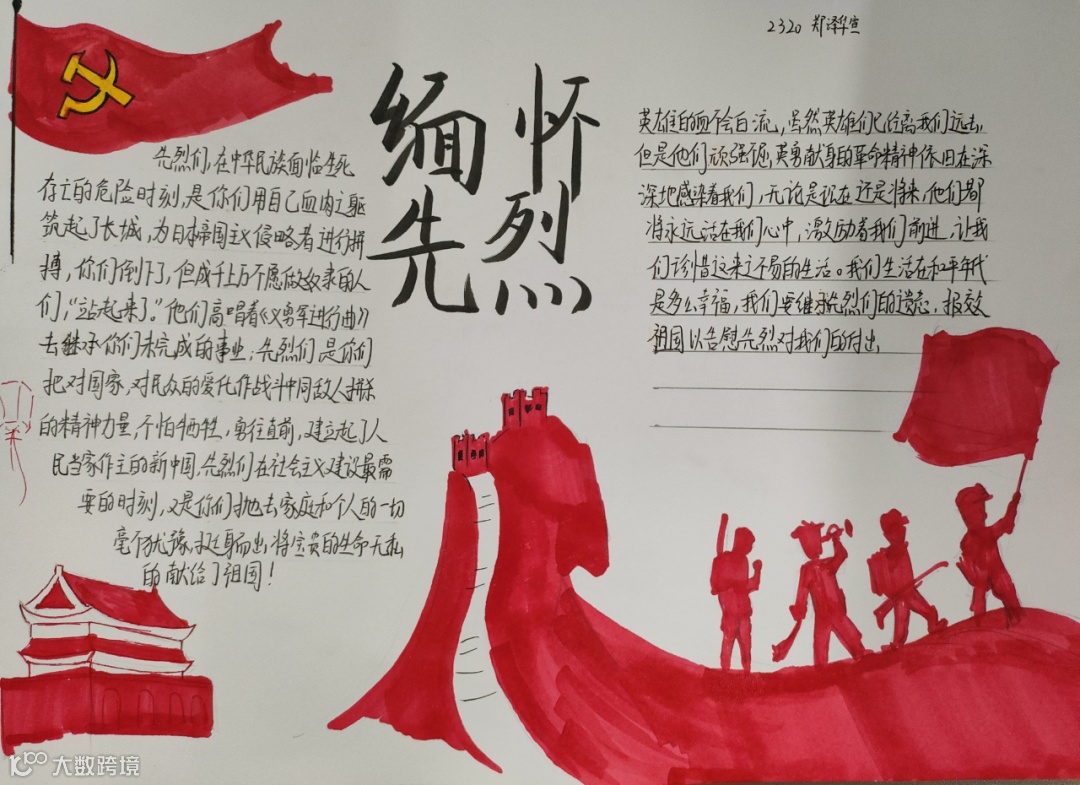 2320 郑泽华宣
缅怀
先烈
先烈们,在中华民族面临生死
存亡的危险时刻,是你们用自己血肉之躯
筑起了长城,为日本帝国主义侵略者进行拼
搏,你们倒下了,但成千上万不愿做奴隶的人
们,“站起来了。”他们高唱着《义勇军进行曲》
去继承你们未完成的事业;先烈们是你们
把对国家,对民众的爱化作战斗中同敌人拼杀
的精神力量,不怕牺牲,勇往直前,建立起了人
民当家作主的新中国,先烈们在社会主义建设最需
要的时刻,又是你们抛去家庭和个人的一切
毫不犹豫,挺身而出,将宝贵的生命无私
的献给了祖国!
英雄们的血不会白流,虽然英雄们已经离我们远去,
但是他们顽强,英勇献身的革命精神依旧在深
深地感染着我们,无论是现在还是将来,他们都
将永远活在我们心中,激励着我们前进,让我
们珍惜这来之不易的生活。我们生活在和平年代
是多么幸福,我们要继承先烈们的遗志,报效
祖国以告慰先烈对我们的付出
大数跨境